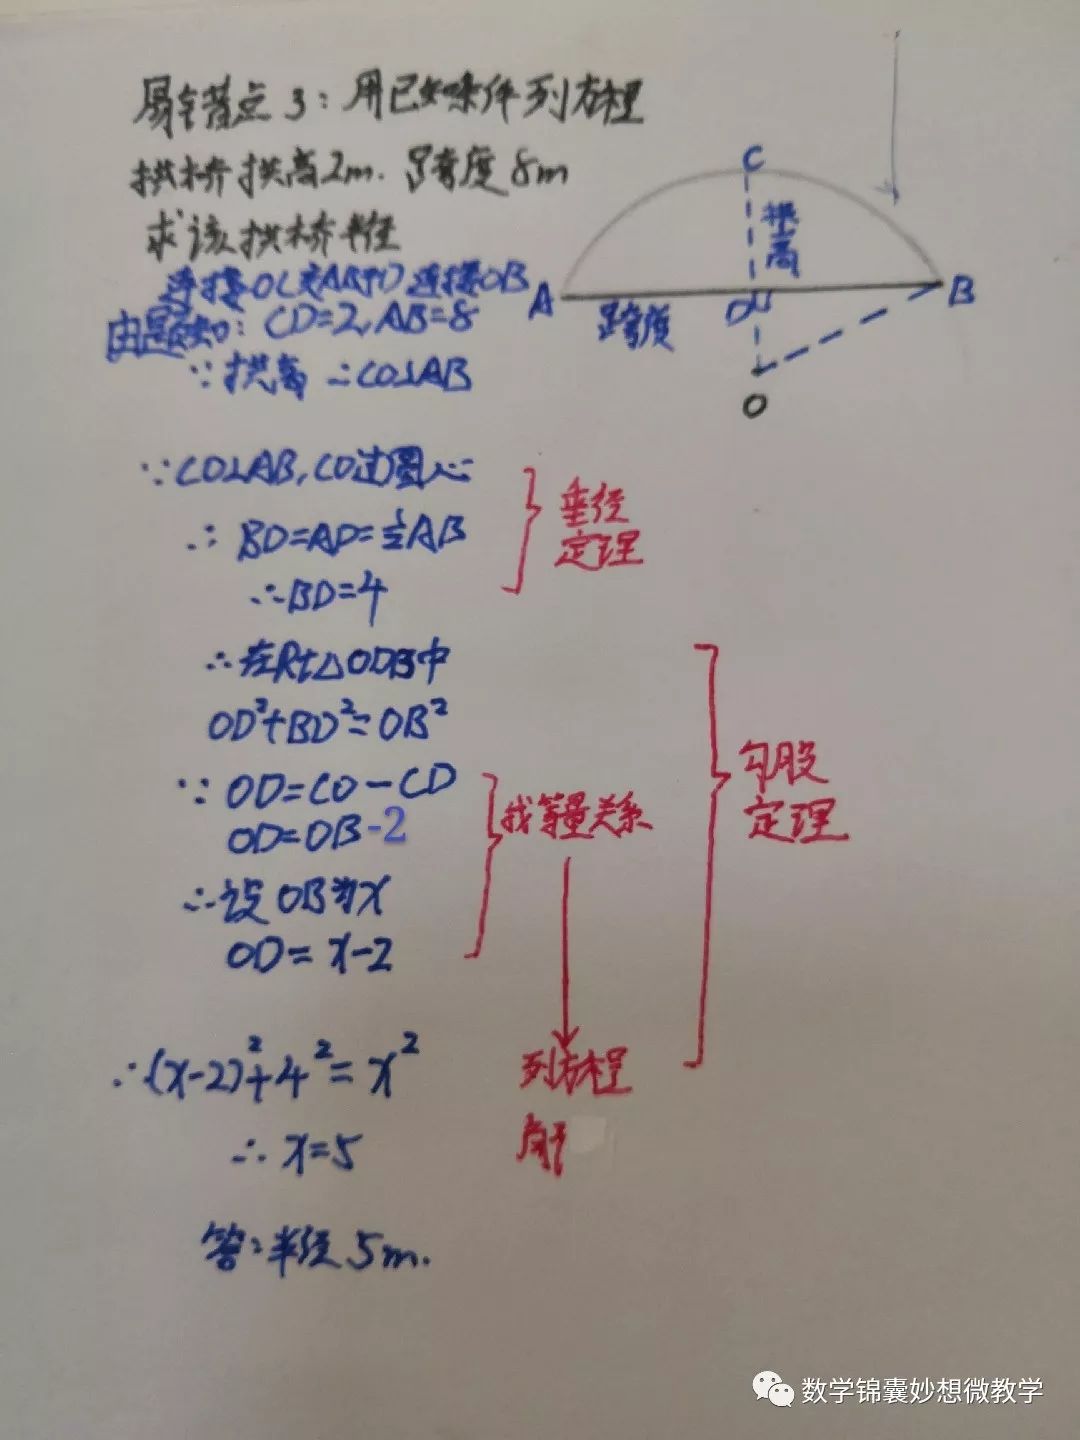 易错点3：用已知条件列方程
拱桥拱高2m.跨度8m
求该拱桥半径
连接OC交AB于D连接OB
由题知：CD=2,AB=8
∵拱高∴CO⊥AB
C
拱高
A
B
跨度
D
O
∵CO⊥AB,CO过圆心
∴BD=AD=½AB
∴BD=4
垂径
定理
∴在Rt△ODB中
OD²+BD²=OB²
∵OD=CO-CD
OD=OB-2
∴设OB为x
OD=x-2
找等量关系
勾股
定理
∴(x-2)²+4²=x²
列方程
∴x=5
答：半径5m.
数学锦囊妙想微教学